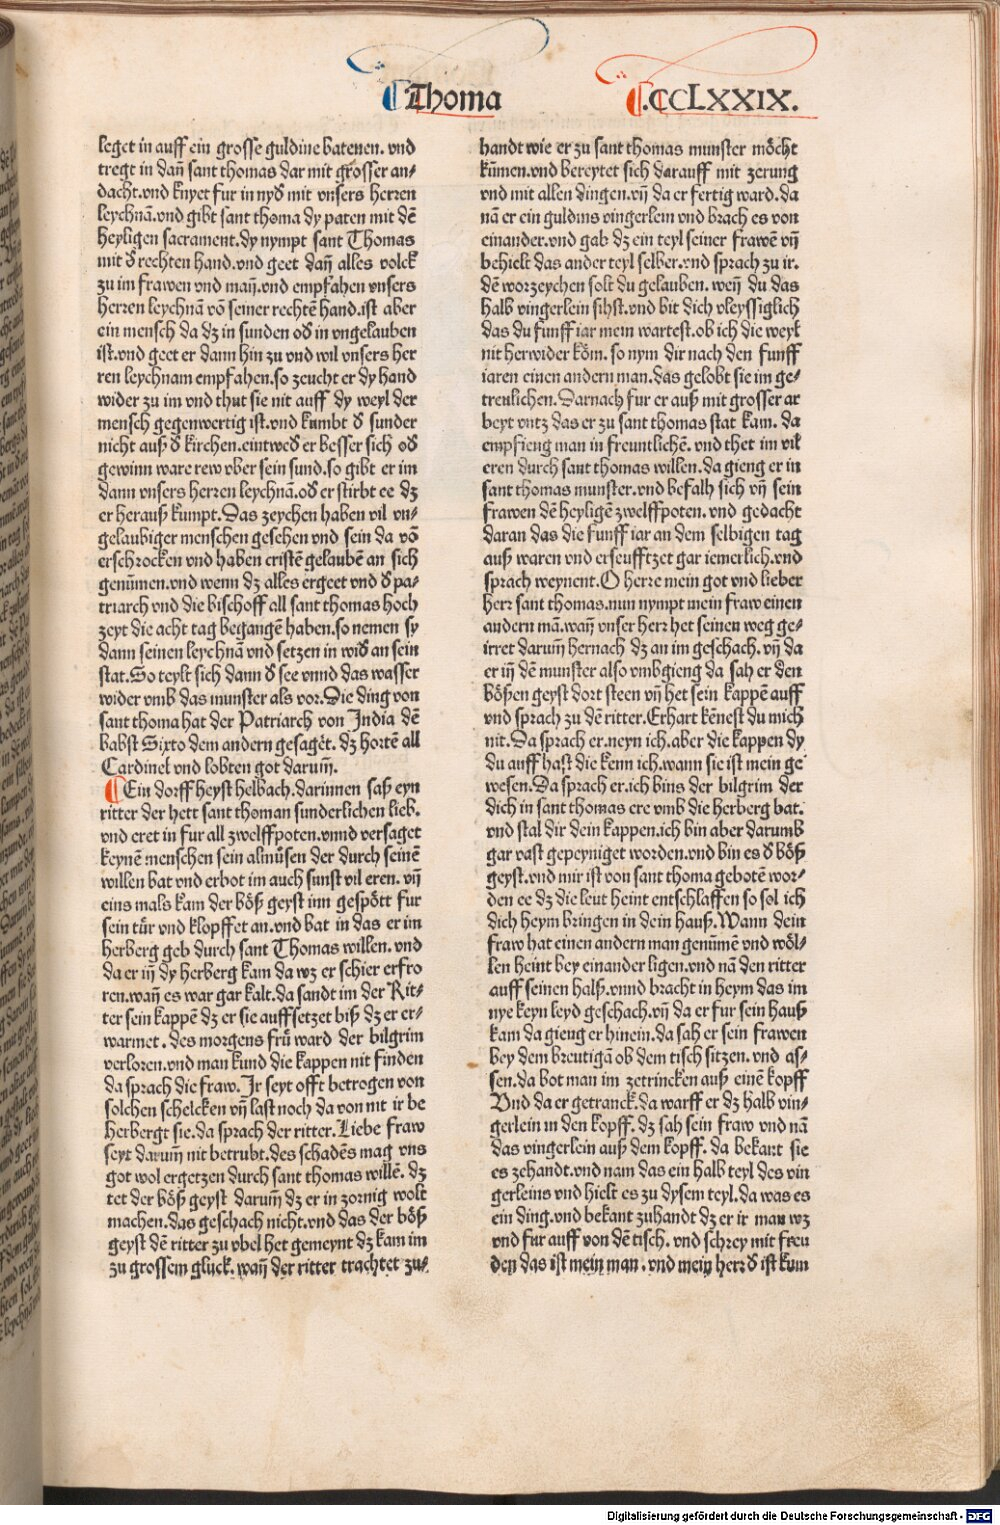 Thoma
.CCLXXIX.
leget in auff ein grosse guldine batenen. vnd
tregt in dañ sant thomas dar mit grosser an-
dacht.vnd knyet fur in nyd mit vnsers herren
leychnã.vnd gibt sant thoma dy paten mit dẽ
heyligen sacrament.dy nympt sant Thomas
mit ď rechten hand.vnd geet dañ alles volck
zu im frawen vnd mañ.vnd empfahen vnsers
herren leychnã võ seiner rechtẽ hand.ist aber
ein mensch da dz in sunden oď in vngelauben
ist.vnd geet er dann hin zu vnd wil vnsers her
ren leychnam empfahen.so zeucht er dy hand
wider zu im vnd thut sie nit auff dy weyl der
mensch gegenwertig ist.vnd kumbt ď sunder
nicht auß ď kirchen.eintweď er besser sich oď
gewinn ware rew vber sein sund.so gibt er im
dann vnsers herren leychnã.oď er stirbt ee dz
er herauß kumpt.Das zeychen haben vil vn-
gelaubiger menschen gesehen vnd sein da võ
erschrocken vnd haben cristẽ gelaubẽ an sich
genũmen.vnd wenn dz alles ergeet vnd ď pa-
triarch vnd die bischoff all sant thomas hoch
zeyt die acht tag begangẽ haben.so nemen sy
dann seinen leychnã vnd setzen in wiď an sein
stat.So teylt sich dann ď see vnnd das wasser
wider vmb das munster als vor.Die ding von
sant thoma hat der Patriarch von India dẽ
babst Sixto dem andern gesaget. dz hortẽ all
Cardinel vnd lobten got darum̃.
Ein dorff heyst helbach.darinnen saß eyn
ritter der hett sant thoman sunderlichen lieb.
vnd eret in fur all zwelffpoten.vnnd versaget
keynẽ menschen sein almũsen der durch seinẽ
willen bat vnd erbot im auch sunst vil eren. vñ
eins mals kam der bőß geyst inn gespőtt fur
sein tűr vnd klopffet an.vnd bat in das er im
herberg geb durch sant Thomas willen. vnd
da er iñ dy herberg kam da wz er schier erfro
ren.wañ es war gar kalt.da sandt im der Rit-
ter sein kappẽ dz er sie auffsetzet biß dz er er-
warmet. des morgens frű ward der bilgrim
verloren.vnd man kund die kappen nit finden
da sprach die fraw. Ir seyt offt betrogen von
solchen schelcken vñ last noch da von nit ir be
herbergt sie.da sprach der ritter.Liebe fraw
seyt darum̃ nit betrubt.des schadẽs mag vns
got wol ergetzen durch sant thomas willẽ. dz
tet der bőß geyst darum̃ dz er in zornig wolt
machen.das geschach nicht.vnd das der bőß
geyst dẽ ritter zu vbel het gemeynt dz kam im
zu grossem gluck. wañ der ritter trachtet zu-
handt wie er zu sant thomas munster mőcht
kũmen.vnd bereytet sich darauff mit zerung
vnd mit allen dingen.vñ da er fertig ward.da
nã er ein guldins vingerlein vnd brach es von
einander.vnd gab dz ein teyl seiner frawẽ vñ
behielt das ander teyl selber.vnd sprach zu ir.
dẽ worzeychen solt du gelauben. weñ du das
halb vingerlein sihst.vnd bit dich vleyssiglich
das du funff iar mein wartest.ob ich die weyl
nit herwider kőm. so nym dir nach den funff
iaren einen andern man.das gelobt sie im ge-
treulichen.Darnach fur er auß mit grosser ar
beyt vntz das er zu sant thomas stat kam. da
empfieng man in freuntlichẽ. vnd thet im vil
eren durch sant thomas willen.da gieng er in
sant thomas munster.vnd befalh sich vñ sein
frawen dẽ heyligẽ zwelffpoten. vnd gedacht
daran das die funff iar an dem selbigen tag
auß waren vnd erseufftzet gar iemerlich.vnd
sprach weynent.O herre mein got vnd lieber
herr sant thomas.nun nympt mein fraw einen
andern mã.wañ vnser herr het seinen weg ge-
irret darum̃ hernach dz an im geschach. vñ da
er iñ dẽ munster also vmbgieng da sah er den
bőßen geyst dort steen vñ het sein kappẽ auff
vnd sprach zu dẽ ritter.Erhart kẽnest du mich
nit.Da sprach er.neyn ich.aber die kappen dy
du auff hast die kenn ich.wann sie ist mein ge
wesen.Da sprach er.ich bins der bilgrim der
dich in sant thomas ere vmb die herberg bat.
vnd stal dir dein kappen.ich bin aber darumb
gar vast gepeyniget worden.vnd bin es ď bőß
geyst.vnd mir ist von sant thoma gebotẽ wor-
den ee dz die leut heint entschlaffen so sol ich
dich heym bringen in dein hauß.Wann dein
fraw hat einen andern man genũmen vnd wől-
len heint bey einander ligen.vnd nã den ritter
auff seinen halß.vnnd bracht in heym das im
nye keyn leyd geschach.vñ da er fur sein hauß
kam da gieng er hinein.da sah er sein frawen
bey dem breutigã ob dem tisch sitzen. vnd as-
sen.da bot man im zetrincken auß einẽ kopff
Vnd da er getranck.da warff er dz halb vin-
gerlein in den kopff. dz sah sein fraw vnd nã
das vingerlein auß dem kopff. da bekant sie
es zehandt.vnd nam das ein halb teyl des vin
gerleins vnd hielt es zu dysem teyl.da was es
ein ding.vnd bekant zuhandt dz er ir man wz
vnd fur auff von dẽ tisch. vnd schrey mit freu
den das ist mein man. vnd mein herr ď ist kum
Digitalisierung gefördert durch die Deutsche Forschungsgemeinschaft - DFG